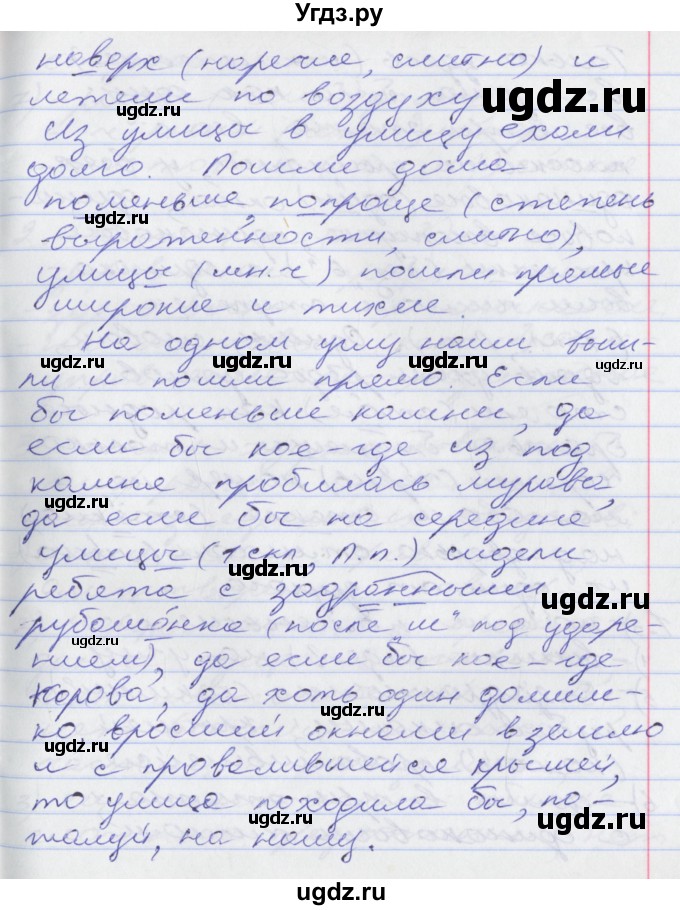 Угдз.ру
наверх (наречие, слитно) и
летели по воздуху
ugdz.ru
ugdz.ru
Из улицы в улицу ехали
долго. Пошли дома
ugdz.ru
поменьше, попроще (степень
ugdz.ru
выраженности, слитно),
улицы (мн.ч) пошли прямые
широкие и тихие.
На одном углу наши выш-
ugdz.ru ugdz.ru ugdz.ru ugdz.ru
ли и пошли прямо. Если
бы поменьше камни, да
если бы кое-где из под
камня пробилась мурава,
ugdz.ru
да если бы на середине
улицы (1 скл, П.п.) сидели
ugdz.ru
ребята с задранными
ugdz.ru
рубашонка (после "ш" под ударе-
нием), да если бы кое-где
корова, да хоть один домиш-
ugdz.ru
ко, вросший окнами в землю
ugdz.ru
и с провалившейся крышей,
то улица походила бы, по-
ugdz.ru
жалуй, на нашу.
ugdz.ru
ugdz.ru